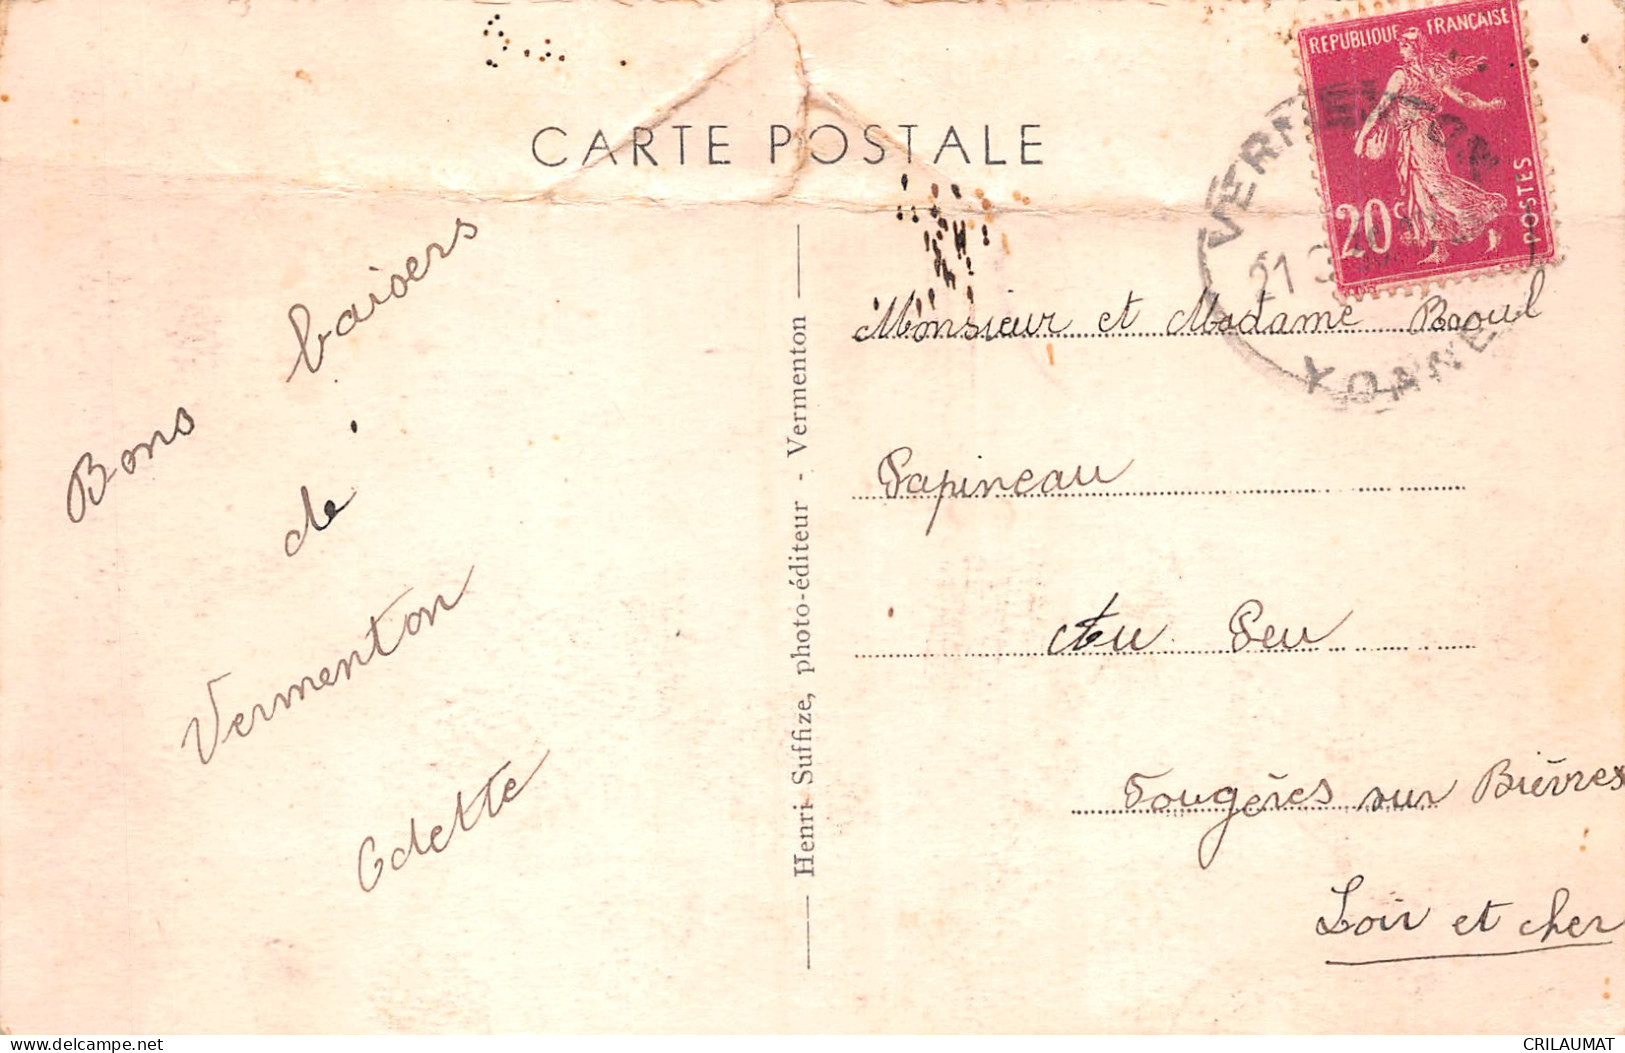 CARTE POSTALE
REPUBLIQUE FRANÇAISE
20c
POSTES
VERMENTON
21
YONNE
Bons baisers
de
Vermenton
Odette
Henri Suffize, photo-éditeur - Vermenton
Monsieur et Madame Raoul
Papineau
Au Peu
Fougères sur Bièvres
Loir et cher
CRILAUMAT